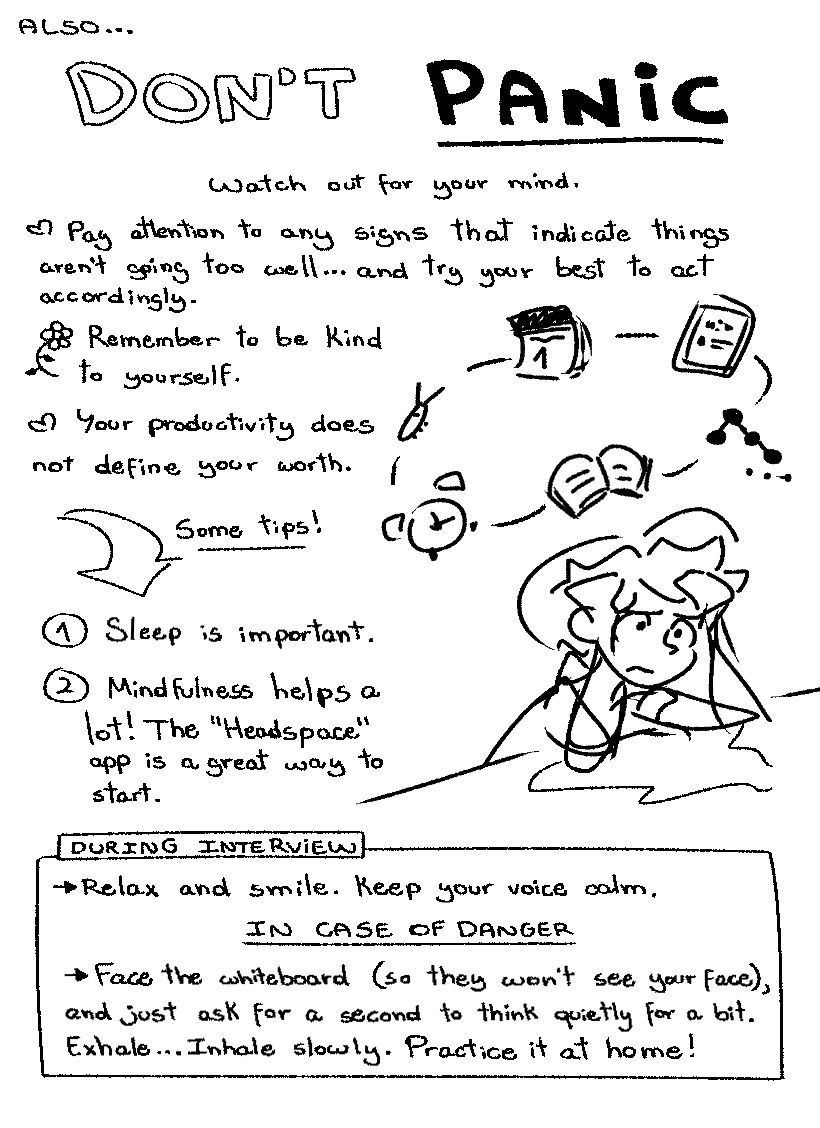 ALSO...
DON'T PANIC
Watch out for your mind.
Pay attention to any signs that indicate things
aren't going too well... and try your best to act
accordingly.
Remember to be kind
to yourself.
Your productivity does
not define your worth.
1
Some tips!
1 Sleep is important.
2 Mindfulness helps a
lot! The "Headspace"
app is a great way to
start.
DURING INTERVIEW
→Relax and smile. Keep your voice calm.
IN CASE OF DANGER
→ Face the whiteboard (so they won't see your face),
and just ask for a second to think quietly for a bit.
Exhale...Inhale slowly. Practice it at home!